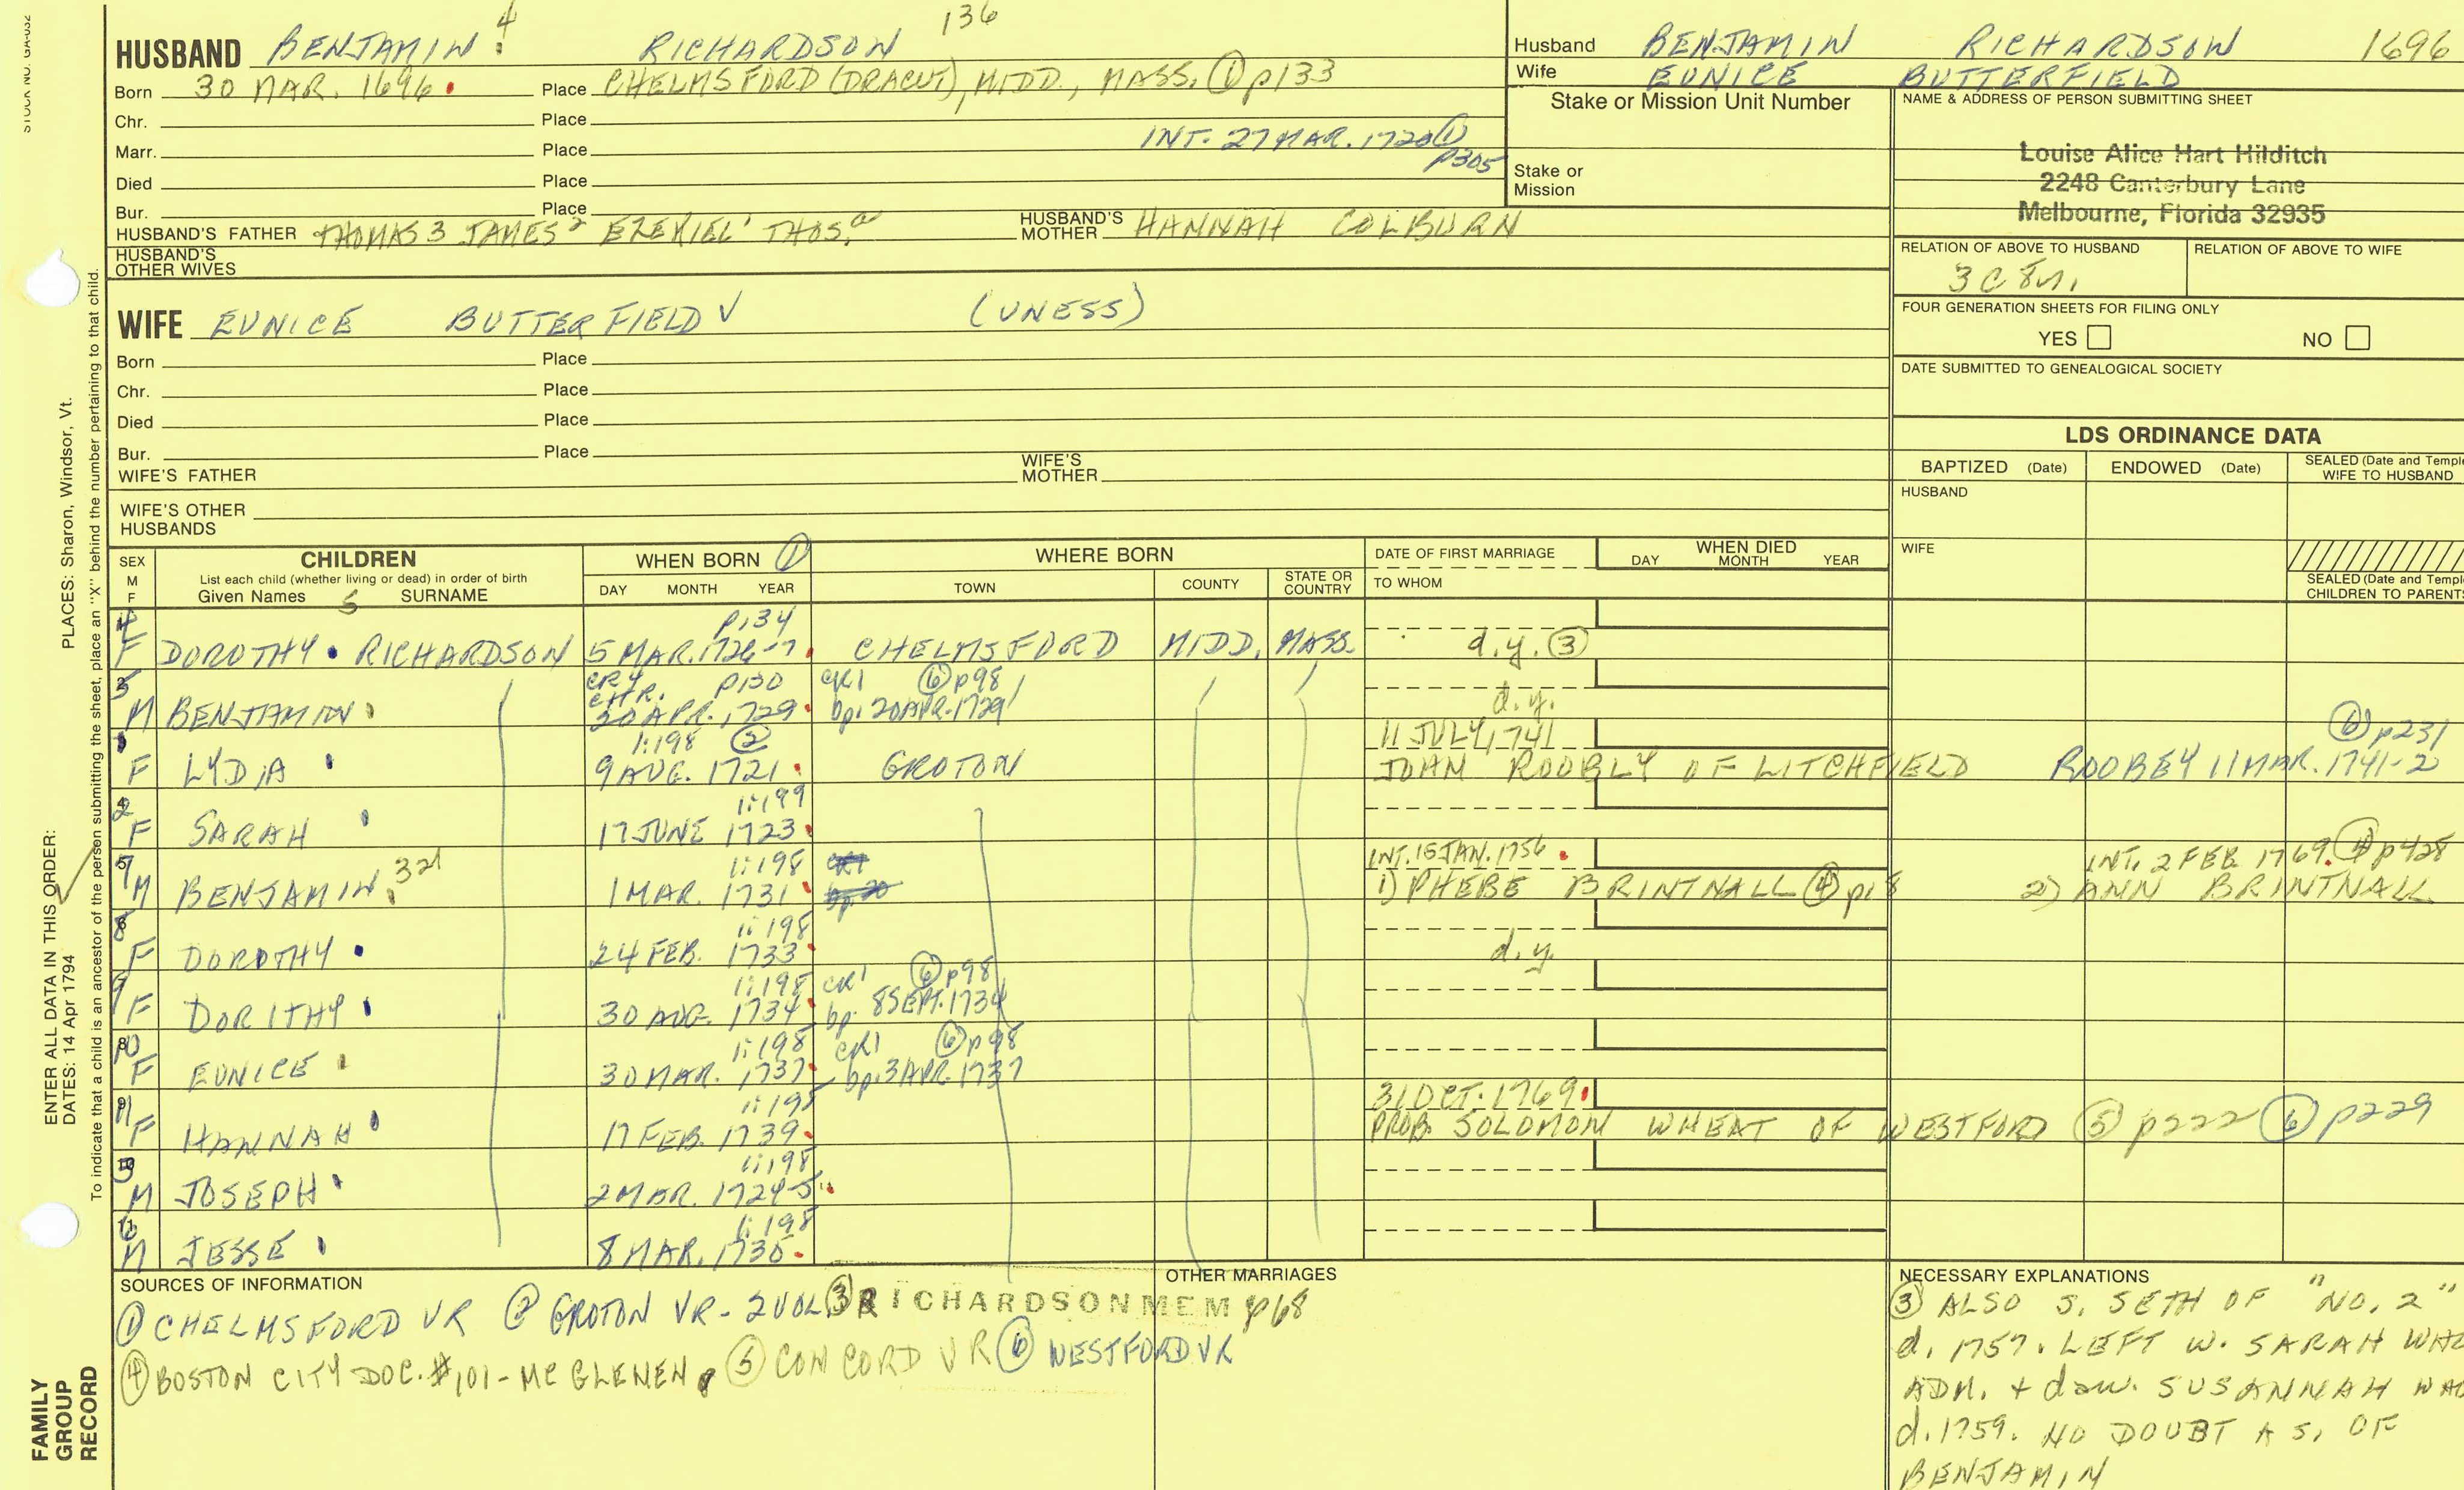 STOCK NO. GA-032
HUSBAND BENJAMIN 4 RICHARDSON 136
Born 30 MAR. 1696. Place CHELMSFORD (DRACUT), MIDD., MASS. ① p133
Chr. Place
Marr. Place INT. 27 MAR. 1720 ① p305
Died Place
Bur. Place
HUSBAND'S FATHER THOMAS 3 JAMES 2 EZEKIEL 1 THOS. a HUSBAND'S MOTHER HANNAH COLBURN
HUSBAND'S OTHER WIVES
WIFE EUNICE BUTTERFIELD √ (UNESS)
Born Place
Chr. Place
Died Place
Bur. Place
WIFE'S FATHER WIFE'S MOTHER
WIFE'S OTHER HUSBANDS
Husband BENJAMIN RICHARDSON 1696
Wife EUNICE BUTTERFIELD
Stake or Mission Unit Number
Stake or Mission
NAME & ADDRESS OF PERSON SUBMITTING SHEET
Louise Alice Hart Hilditch
2248 Canterbury Lane
Melbourne, Florida 32935
RELATION OF ABOVE TO HUSBAND RELATION OF ABOVE TO WIFE
3C 8r.
FOUR GENERATION SHEETS FOR FILING ONLY
YES NO
DATE SUBMITTED TO GENEALOGICAL SOCIETY
LDS ORDINANCE DATA
BAPTIZED (Date) ENDOWED (Date) SEALED (Date and Templ
WIFE TO HUSBAND
HUSBAND
WIFE
SEALED (Date and Templ
CHILDREN TO PARENT
SEX M F
CHILDREN
List each child (whether living or dead) in order of birth
Given Names 5 SURNAME
WHEN BORN ①
DAY MONTH YEAR
WHERE BORN
TOWN COUNTY STATE OR COUNTRY
DATE OF FIRST MARRIAGE
TO WHOM
WHEN DIED
DAY MONTH YEAR
p134
4 F DOROTHY. RICHARDSON 5 MAR. 1726-7. CHELMSFORD MIDD. MASS. d.y. ③
CHR. p130 CR1 ⑥ p98
M BENJAMIN 20 APR. 1729. bp. 20 APR. 1729 d.y.
1:198 ② 11 JULY 1741 ⑥ p231
F LYDIA 9 AUG. 1721. GROTON JOHN ROOBLY OF LITCHFIELD ROOBEY 11 MAR. 1741-2
1:199
2 F SARAH 17 JUNE 1723.
1:198 CR1 INT. 15 JAN. 1756. INT. 2 FEB 1769. ④ p428
7 M BENJAMIN 321 1 MAR. 1731. 1) PHEBE BRINTNALL ④ p18 2) ANN BRINTNALL
1:198
8 F DOROTHY. 24 FEB. 1733. d.y.
1:198 CR1 ⑥ p98
9 F DORITHY 30 AUG. 1734. bp. 8 SEPT. 1734
1:198 CR1 ⑥ p98
10 F EUNICE 30 MAR. 1737. bp. 3 APR. 1737
1:198 31 OCT. 1769.
11 F HANNAH 17 FEB. 1739. PROB. SOLOMON WHEAT OF WESTFORD ⑤ p222 ⑥ p229
1:198
3 M JOSEPH 2 MAR. 1724-5.
1:198
6 M JESSE 8 MAR. 1730.
SOURCES OF INFORMATION
① CHELMSFORD VR ② GROTON VR - 2 VOL ③ RICHARDSON MEM p68
④ BOSTON CITY DOC. #101 - MC GLENEN ⑤ CONCORD VR ⑥ WESTFORD VR
OTHER MARRIAGES
NECESSARY EXPLANATIONS
③ ALSO S. SETH OF "NO. 2"
d. 1757. LEFT W. SARAH WHO
ADM. + dau. SUSANNAH
d. 1759. NO DOUBT A S. OF
BENJAMIN
PLACES: Sharon, Windsor, Vt.
ENTER ALL DATA IN THIS ORDER:
DATES: 14 Apr 1794
To indicate that a child is an ancestor of the person submitting the sheet, place an "X" behind the number pertaining to that child.
FAMILY
GROUP
RECORD